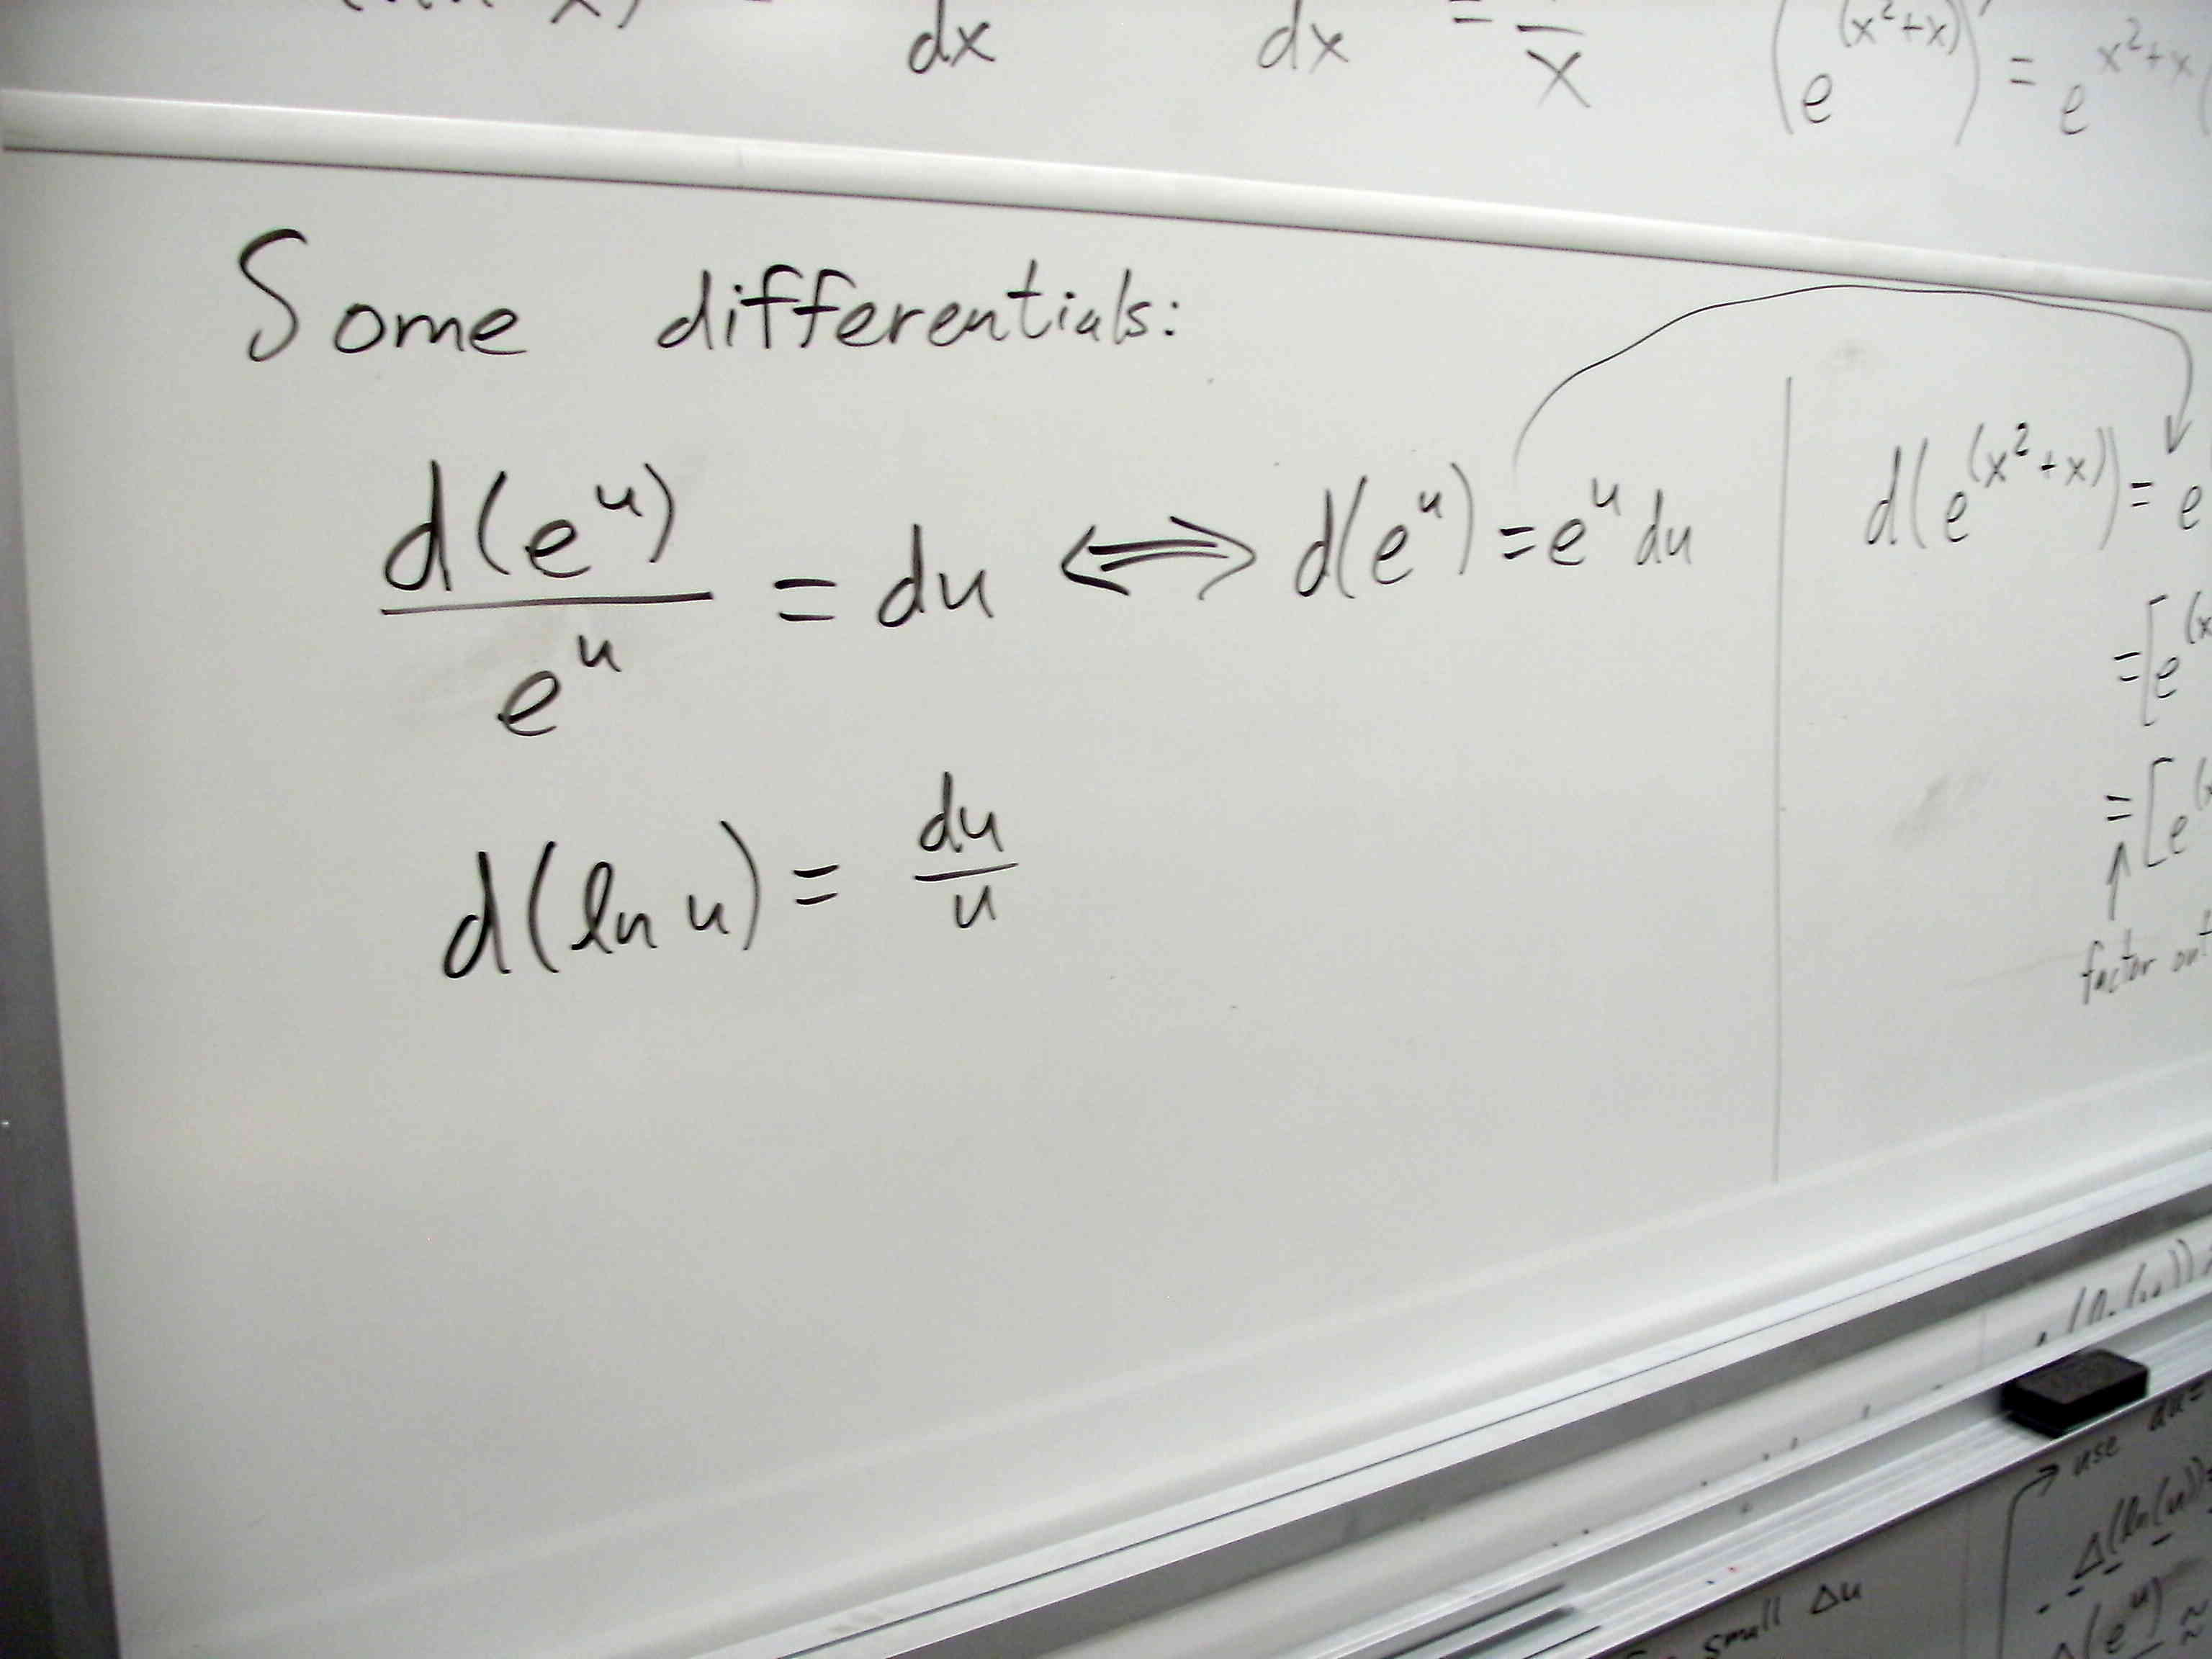 dx dx = x (e^(x²+x))' = e^x²+x
Some differentials:
d(e^u)/e^u = du ⟺ d(e^u) = e^u du
d(ln u) = du/u
d(e^(x²+x)) = e
= [e^(x
= [e^(x
↑
factor out
use du=
Δ(ln(u))
small Δu
Δ(e^u) ≈